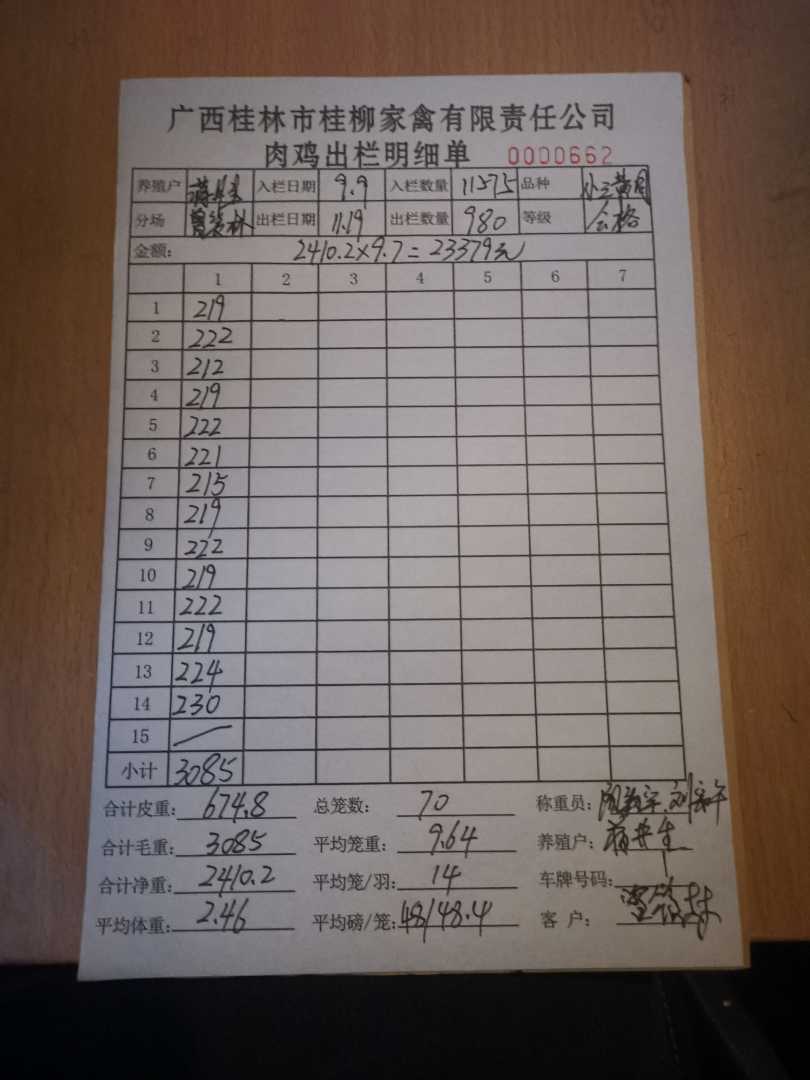 广西桂林市桂柳家禽有限责任公司
肉鸡出栏明细单 0000662
养殖户 入栏日期 9.9 入栏数量 11575 品种
分场 出栏日期 11.19 出栏数量 980 等级 合格
金额: 2410.2×9.7=23379元
1 2 3 4 5 6 7
1 219
2 222
3 212
4 219
5 222
6 221
7 215
8 219
9 222
10 219
11 222
12 219
13 224
14 230
15
小计 3085
合计皮重: 674.8 总笼数: 70 称重员:
合计毛重: 3085 平均笼重: 9.64 养殖户:
合计净重: 2410.2 平均笼/羽: 14 车牌号码:
平均体重: 2.46 平均磅/笼: 48/48.4 客 户: